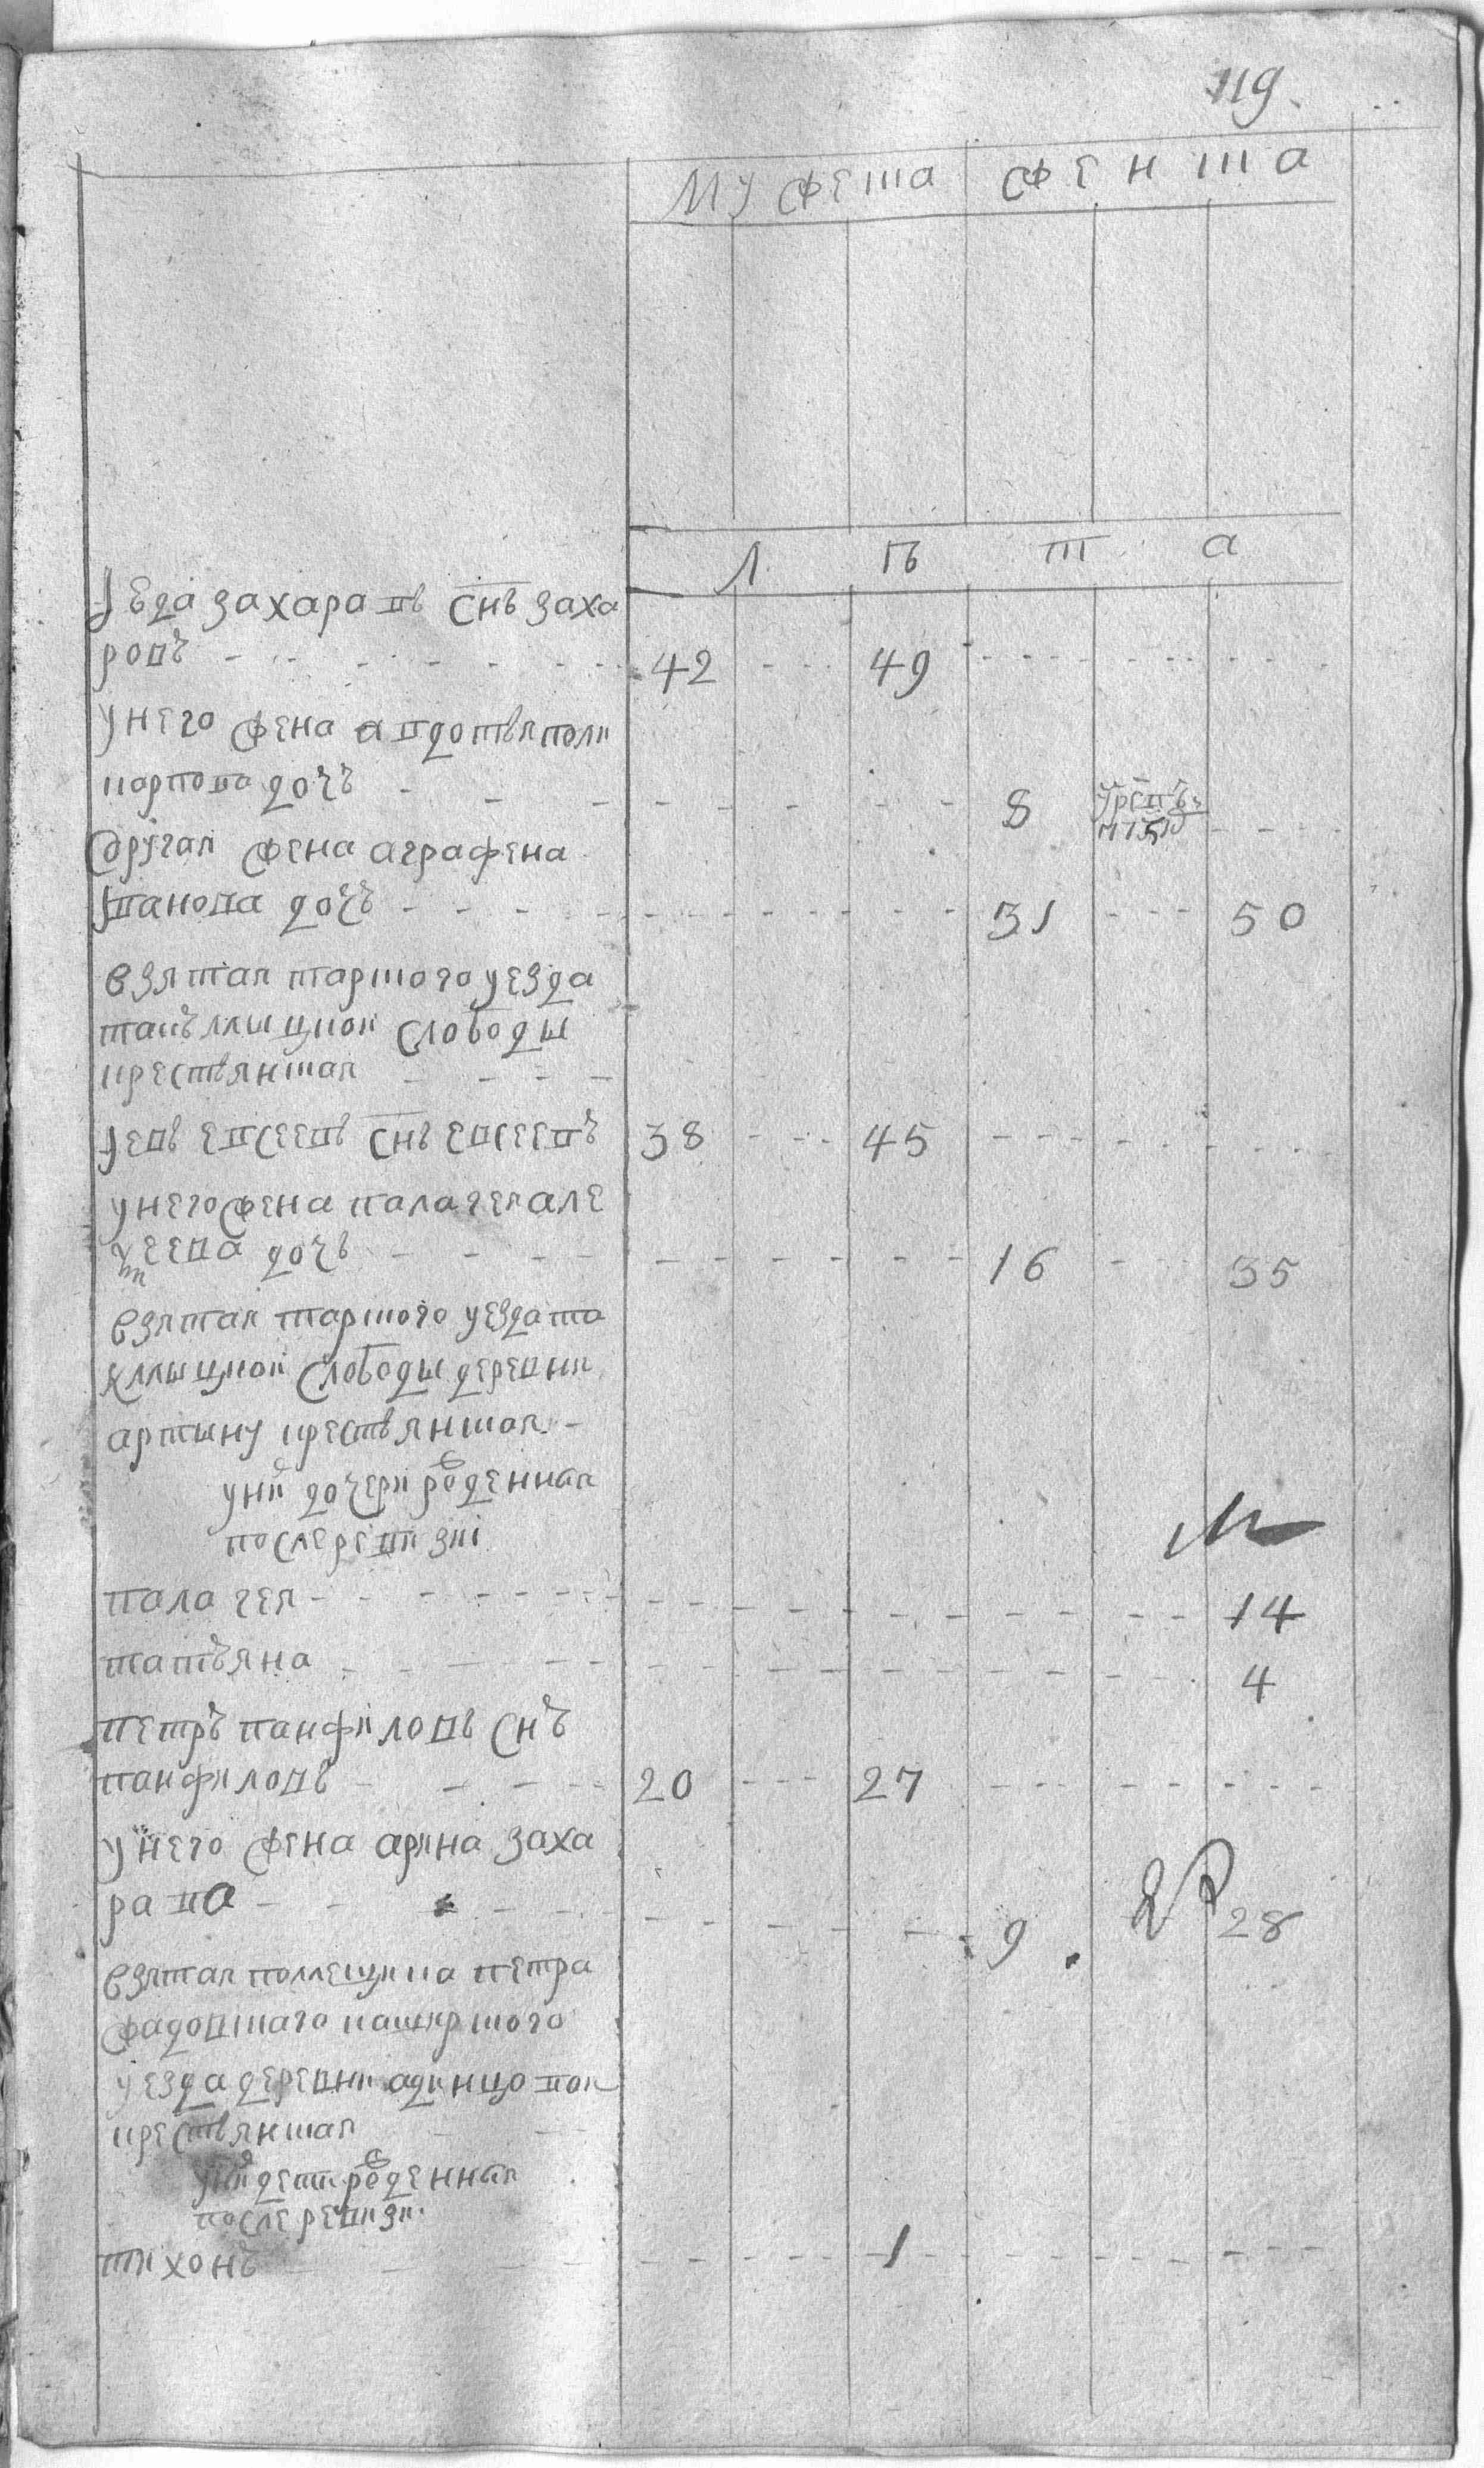 119.
МУЖЕСКА ЖЕНСКА
ЛѢТА
захаравъ снъ заха
ровъ 42 49
унего жена авдотья поли
карпова дочь 8
другая жена аграфена
иванова дочь 31 50
взятая тарского уезда
такъмыцкой слободы
крестьянская
евсеевъ снъ евсеевъ 38 45
унего жена палагея але
ѯеева дочь 16 35
взятая тарского уезда та
кмыцкой слободы деревни
артыну крестьянская
уни дочери рожденныя
после ревизиі
палагея 14
татьяна 4
петръ панфиловъ снъ
панфиловъ 20 27
унего жена арина заха
рава 9 28
взятая помещика петра
жадовшаго каширского
уезда деревни адинцовой
крестьянская
уни дети рожденныя
после ревизи
тихонъ 1